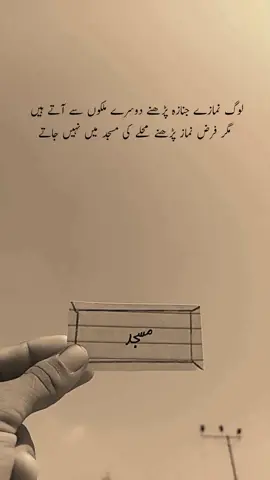 لوگ نمازے جنازہ پڑھنے دوسرے ملکوں سے آتے ہیں
مگر فرض نماز پڑھنے محلے کی مسجد میں نہیں جاتے
مسجد